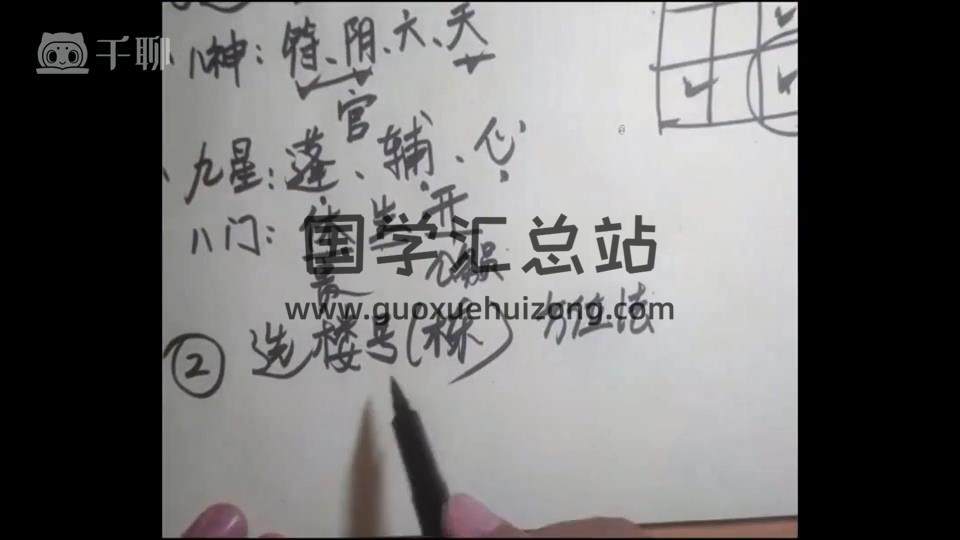 千聊
八神：符、阴、六、天
官
九星：蓬、辅、心
八门：休 生 开
国学汇总站
www.guoxuehuizong.com
② 选楼号（栋） 方位法